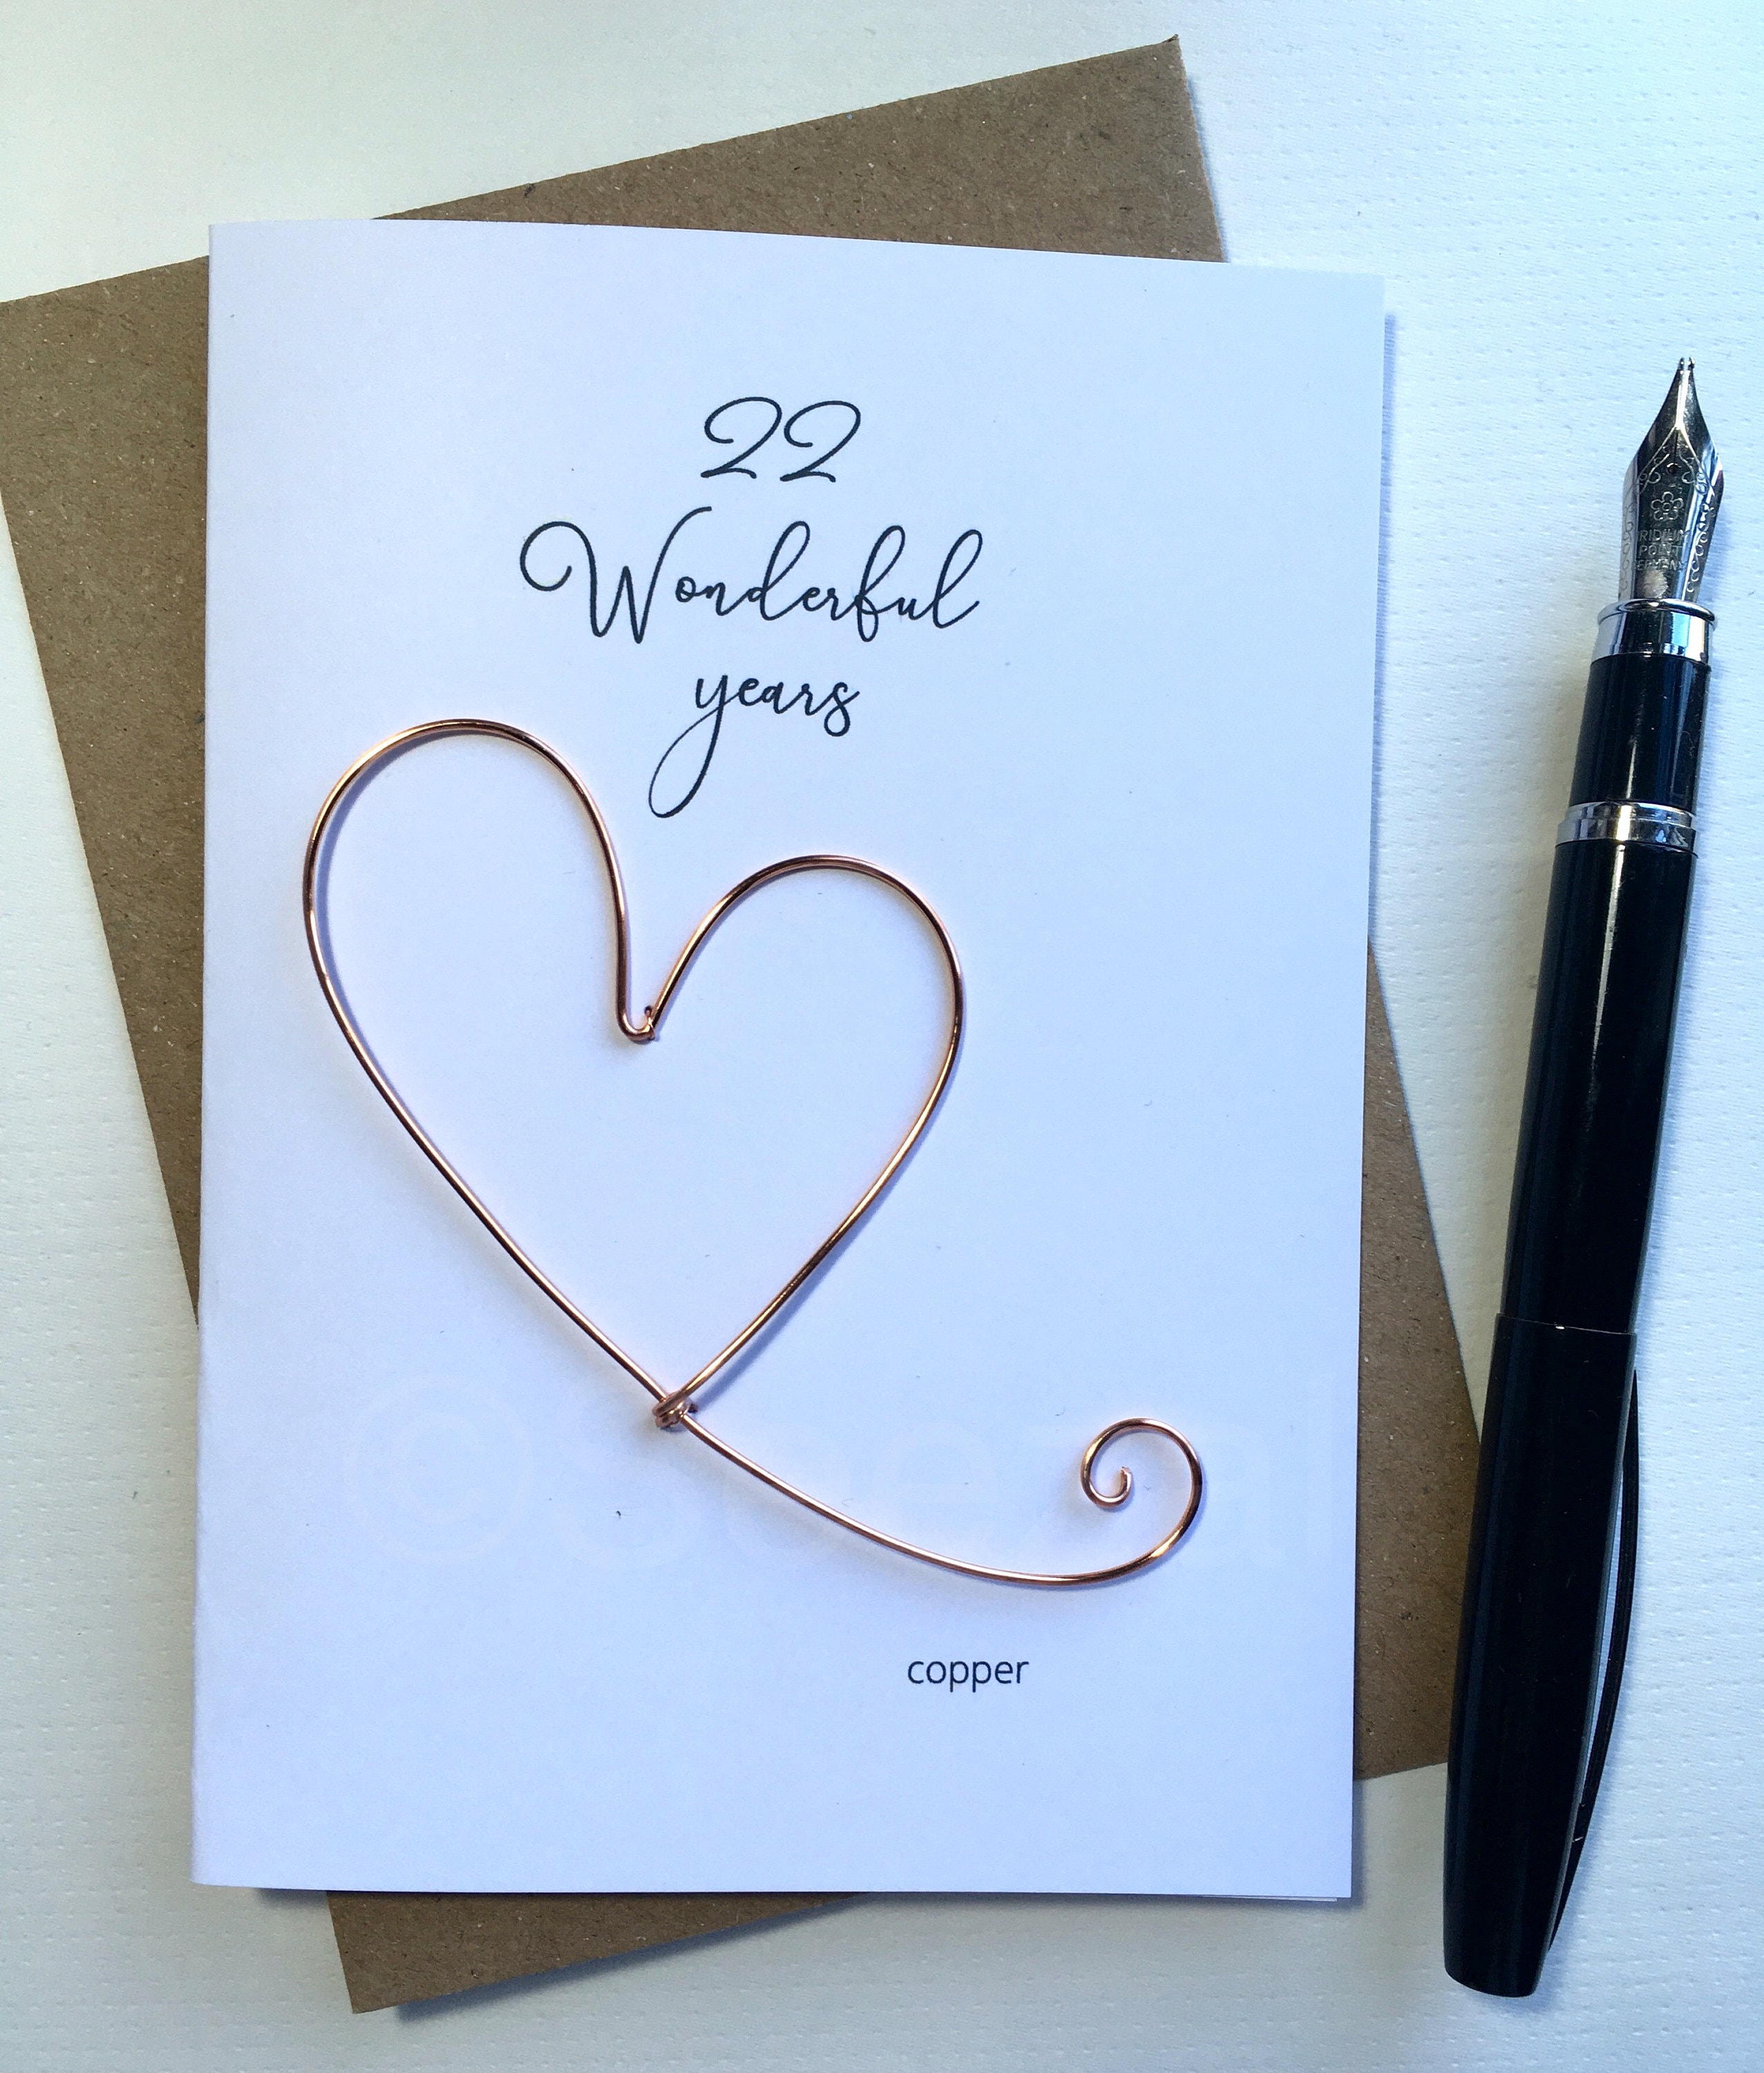 22
Wonderful
years
IRIDIUM
POINT
GERMANY
copper